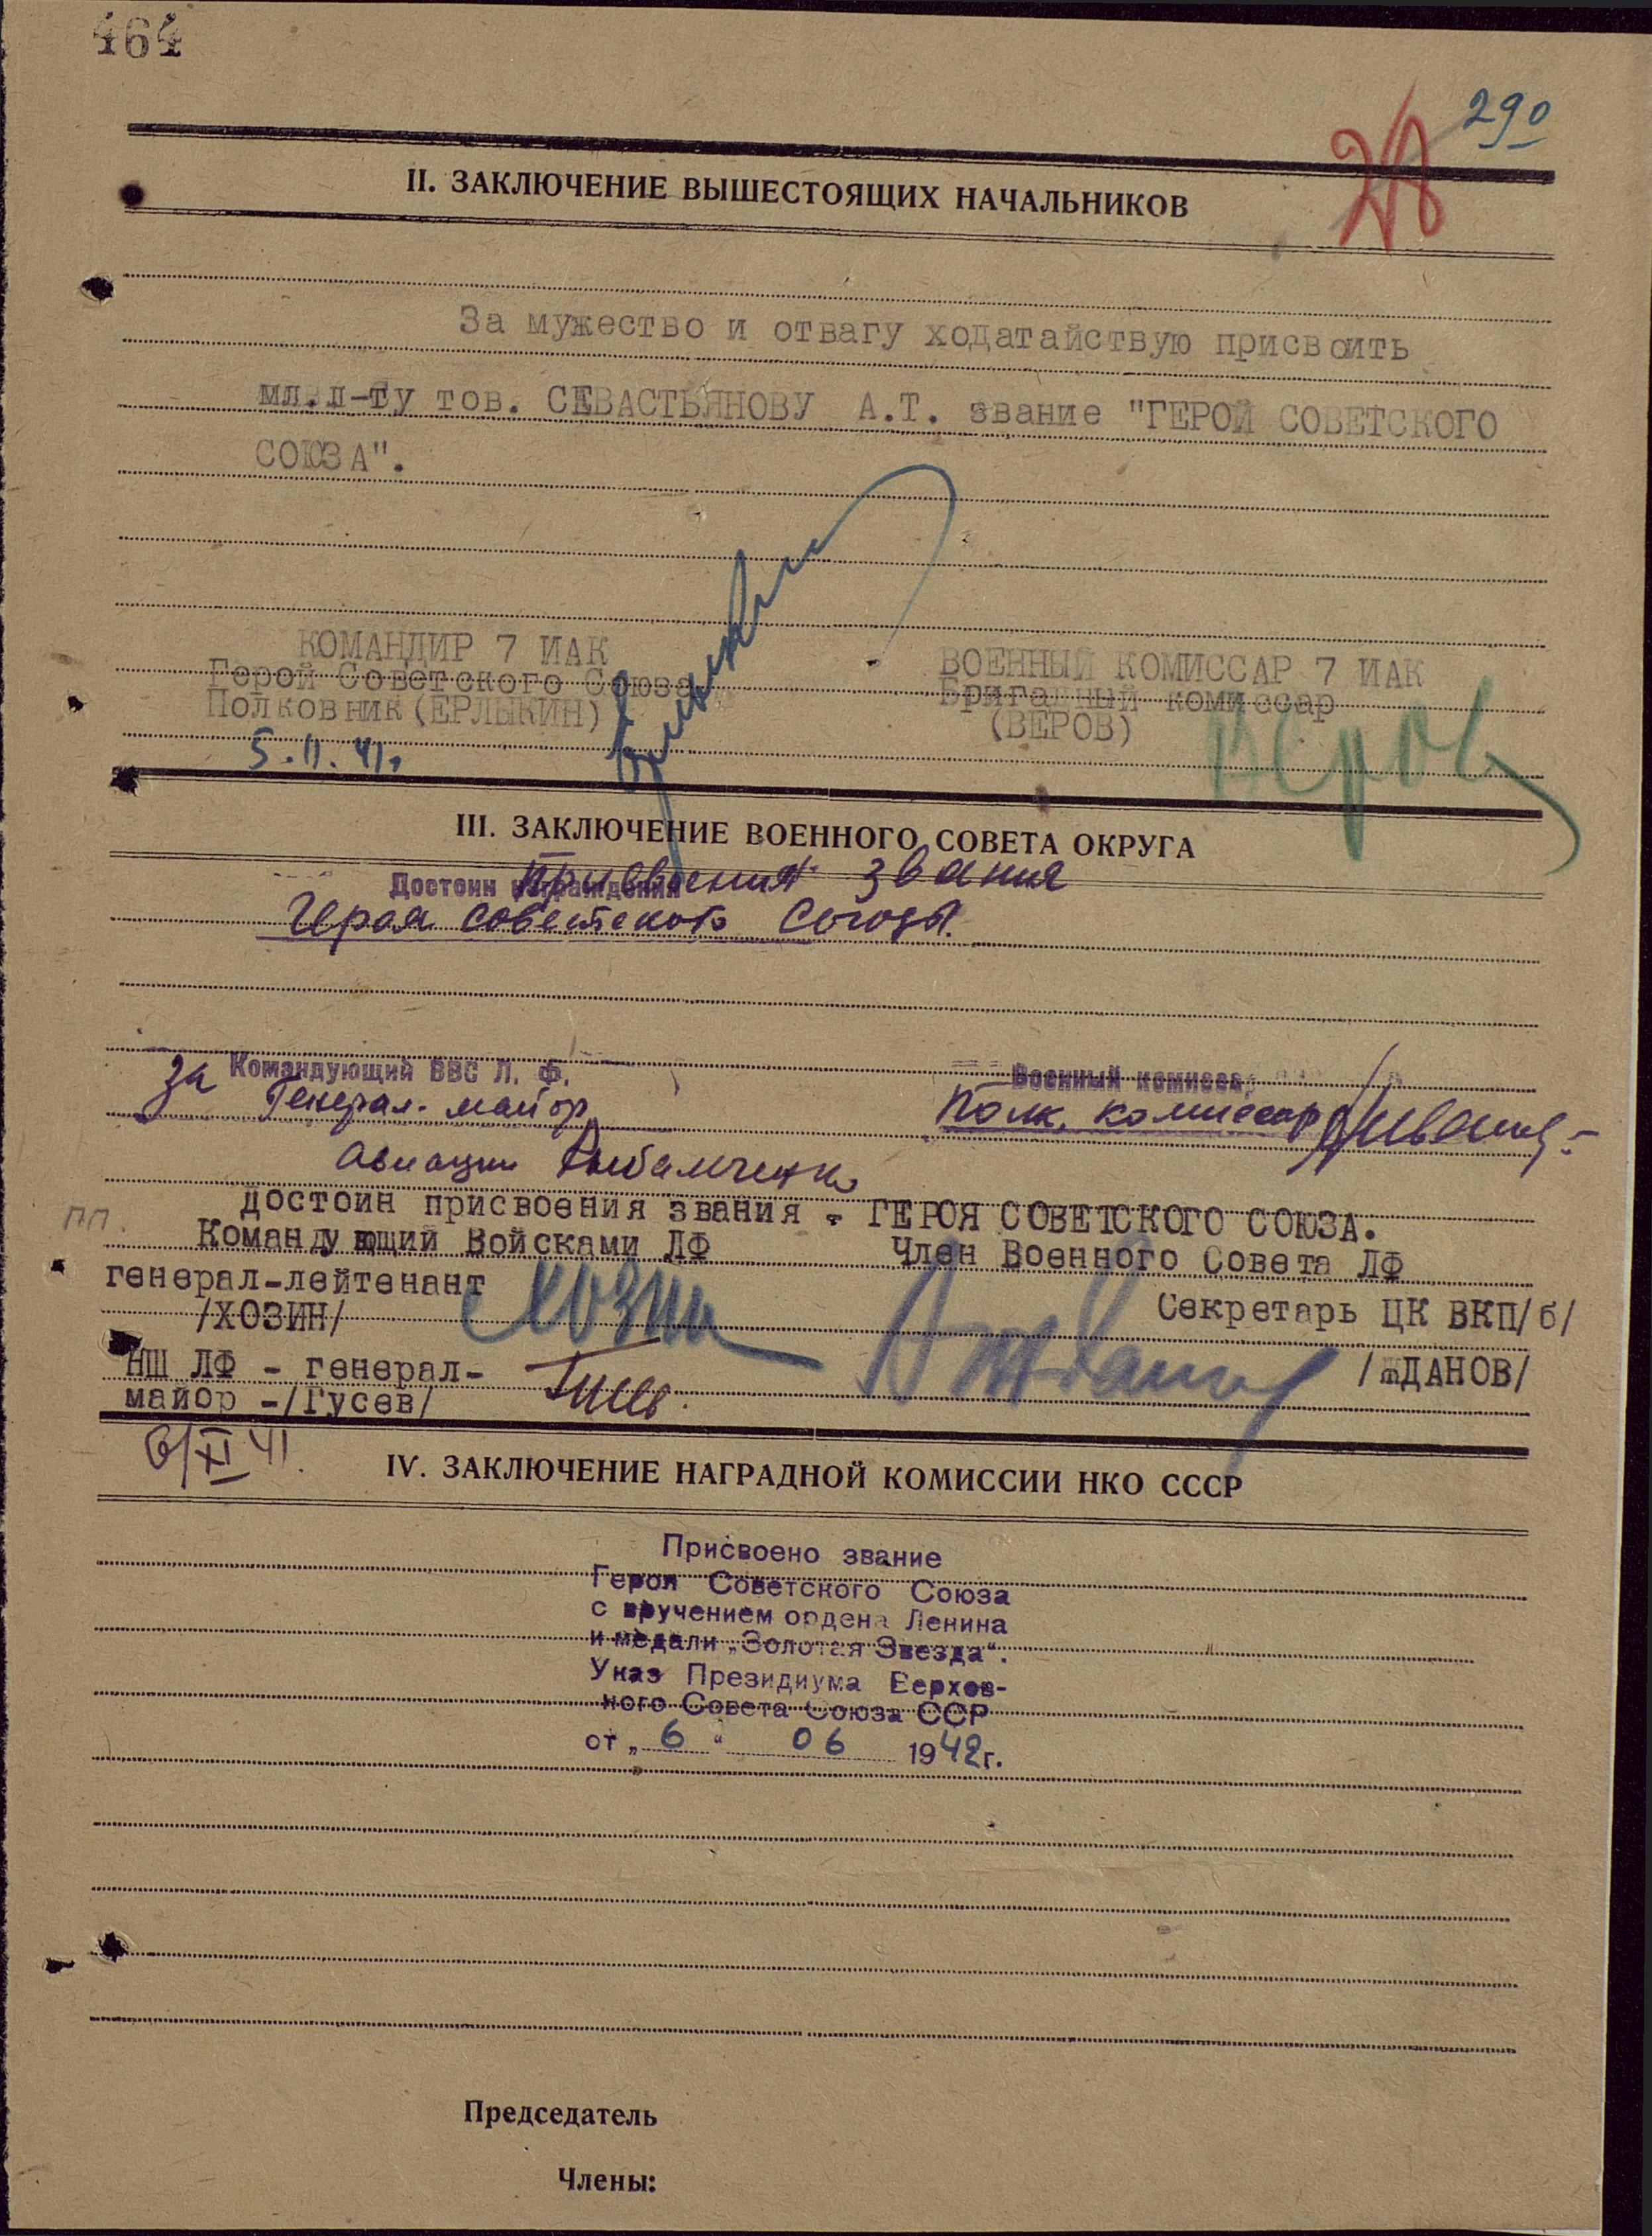 464
290
28
II. ЗАКЛЮЧЕНИЕ ВЫШЕСТОЯЩИХ НАЧАЛЬНИКОВ
За мужество и отвагу ходатайствую присвоить
мл.л-ту тов. СЕВАСТЬЯНОВУ А.Т. звание "ГЕРОЙ СОВЕТСКОГО
СОЮЗА".
КОМАНДИР 7 ИАК
Герой Советского Союза
Полковник (ЕРЛЫКИН)
5.11.41г
ВОЕННЫЙ КОМИССАР 7 ИАК
Бригадный комиссар
(ВЕРОВ)
Веров
III. ЗАКЛЮЧЕНИЕ ВОЕННОГО СОВЕТА ОКРУГА
Достоин награждения присвоения звания
Героя Советского Союза.
за Командующий ВВС Л. Ф.
Генерал-майор
авиации Рыбальченко
Военный комиссар
Полк. комиссар Иванов
Достоин присвоения звания - ГЕРОЯ СОВЕТСКОГО СОЮЗА.
пп.
Командующий Войсками ЛФ
генерал-лейтенант
/ХОЗИН/
Хозин
Член Военного Совета ЛФ
Секретарь ЦК ВКП/б/
/ЖДАНОВ/
Жданов
НШ ЛФ - генерал-
майор -/Гусев/
6/XI 41.
IV. ЗАКЛЮЧЕНИЕ НАГРАДНОЙ КОМИССИИ НКО СССР
Присвоено звание
Героя Советского Союза
с вручением ордена Ленина
и медали „Золотая Звезда“.
Указ Президиума Верхов-
ного Совета Союза ССР
от „ 6 “ 06 1942г.
Председатель
Члены: